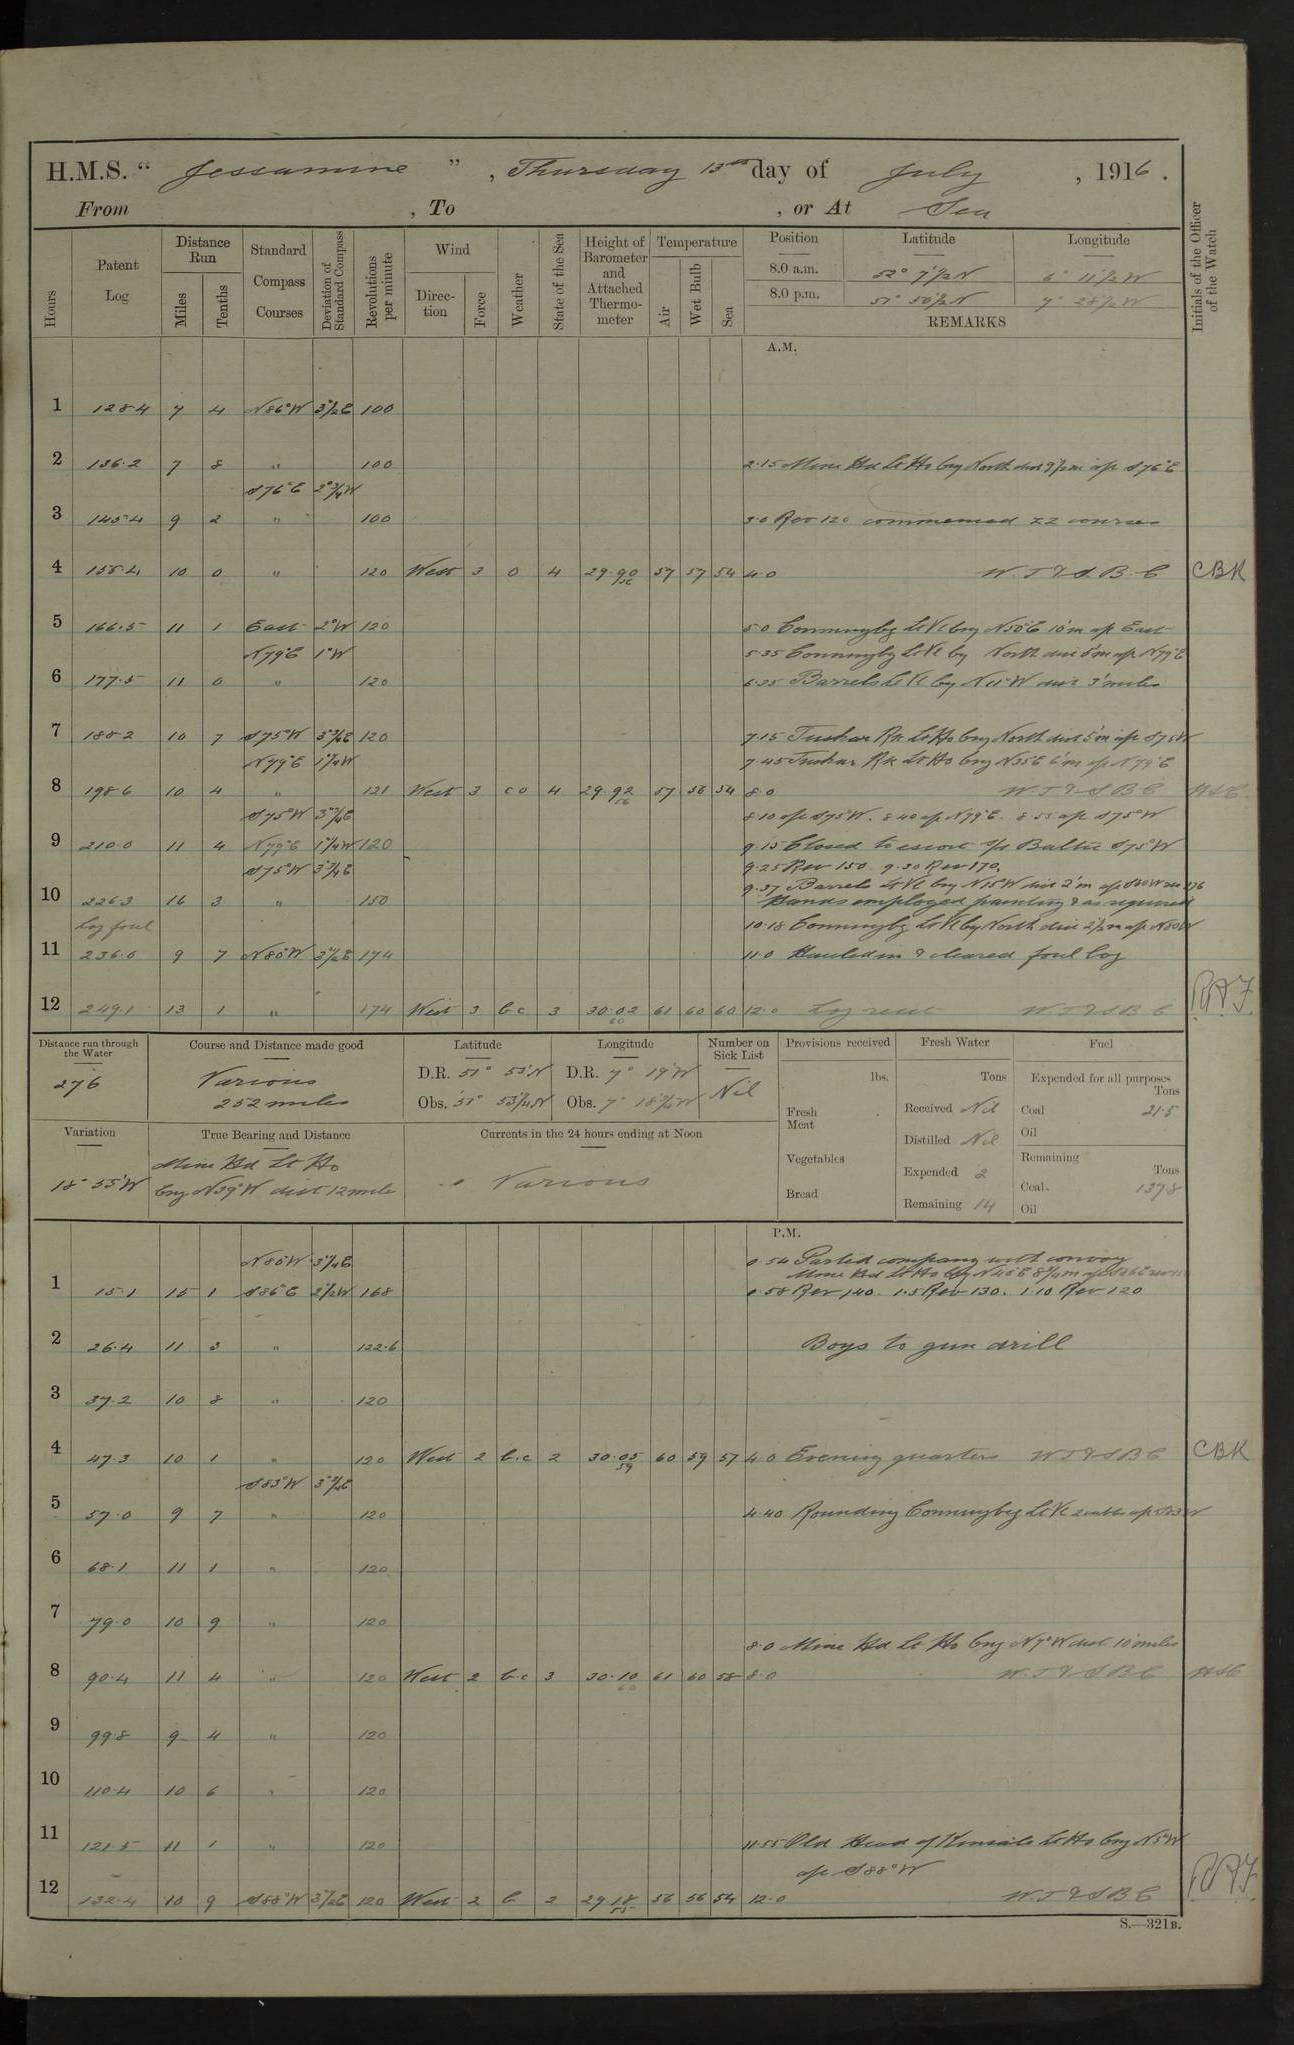 H.M.S. “ Jessamine ” , Thursday 13th day of July , 1916 .
From , To , or At Sea
Hours
Patent Log
Distance Run
Miles
Tenths
Standard Compass Courses
Deviation of Standard Compass
Revolutions per minute
Wind
Direction
Force
Weather
State of the Sea
Height of Barometer and Attached Thermometer
Temperature
Air
Wet Bulb
Sea
Position Latitude Longitude
8.0 a.m. 52° 7½ N 6° 11½ W
8.0 p.m. 51° 50½ N 7° 28½ W
REMARKS
Initials of the Officer of the Watch
A.M.
1 128.4 7 4 N86°W 3½E 100
2 136.2 7 8 " 100 2.15 Mine Hd Lt Ho brg North dist 9½m a/c S76°E
S76°E 2¾W
3 145.4 9 2 " 100 3.0 Rev 120 commenced ZZ courses
4 155.4 10 0 " 120 West 3 O 4 29.90 57 57 54 4.0 W.T & S.B.C CBK
5 166.5 11 1 East 2°W 120 5.0 Conningbg Lt Vl brg N50°E 10'm a/c East
N79°E 1°W 5.35 Conningbg Lt Vl brg North dist 5'm a/c N79°E
6 177.5 11 0 " 120 6.35 Barrels Lt Vl brg N11°W dist 3'miles
7 188.2 10 7 S75°W 3¾E 120 7.15 Tuskar Rk Lt Ho brg North dist 5'm a/c S75W
N79°E 1¼W 7.45 Tuskar Rk Lt Ho brg N35E 6'm a/c N79°E
8 198.6 10 4 " 121 West 3 c o 4 29.92 57 56 54 8.0 W.T & S B C
S75°W 3¾E 8.10 a/c S75°W. 8.40 a/c N79°E. 8.55 a/c S75°W
9 210.0 11 4 N79°E 1¼W 120 9.15 Closed to escort S/S Baltic S75°W
S75°W 3¾E 9.25 Rev 150. 9.30 Rev 170.
9.37 Barrels Lt Vl brg N15°W dist 2'm a/c S80W rev 176
10 226.3 16 3 " 150 Hands employed painting & as required
log foul 10.18 Conningbg Lt Vl brg North dist 2½m a/c N80W
11 236.0 9 7 N80°W 3½E 174 11.0 Hauled in & cleared foul log
12 249.1 13 1 " 174 West 3 b.c 3 30.02 60 61 60 60 12.0 Log reset W.T & S B C R.A.F.
Distance run through the Water
276
Course and Distance made good
Various
252 miles
Latitude
D.R. 51° 53'N
Obs. 51° 53¼N
Longitude
D.R. 7° 19'W
Obs. 7° 18½W
Number on Sick List
Nil
Provisions received
lbs.
Fresh Meat
Vegetables
Bread
Fresh Water
Tons
Received Nil
Distilled Nil
Expended 2
Remaining 14
Fuel
Expended for all purposes
Tons
Coal 21.5
Oil
Remaining
Tons
Coal. 137.8
Oil
Variation
18° 55'W
True Bearing and Distance
Mine Hd Lt Ho
brg N39°W dist 12 mile
Currents in the 24 hours ending at Noon
Various
P.M.
N80W 3¼E 0.54 Parted company with convoy
Mine Hd Lt Ho brg N45°E 8¼m a/c S86E
1 15.1 15 1 S86°E 2½W 168 0.58 Rev 140. 1.5 Rev 130. 1.10 Rev 120
2 26.4 11 3 " 122.6 Boys to gun drill
3 37.2 10 8 " 120
4 47.3 10 1 " 120 West 2 b.c 2 30.05 59 60 59 57 4.0 Evening quarters W.T & S B C CBK
S83°W
5 57.0 9 7 " 120 4.40 Rounding Conningbg Lt Vl 2 cables a/c S83W
6 68.1 11 1 " 120
7 79.0 10 9 " 120
8.0 Mine Hd Lt Ho brg N7°W dist 10'miles
8 90.4 11 4 " 120 West 2 b.c 3 30.10 60 61 60 58 8.0 W.T & S B C
9 99.8 9 4 " 120
10 110.4 10 6 " 120
11 121.5 11 1 " 120 11.55 Old Head of Kinsale Lt Ho brg N5°W
a/c S88°W
12 132.4 10 9 S88°W 3½E 120 West 2 b 2 29.18 55 56 56 54 12.0 W.T & S B C R.A.F.
S.—321B.